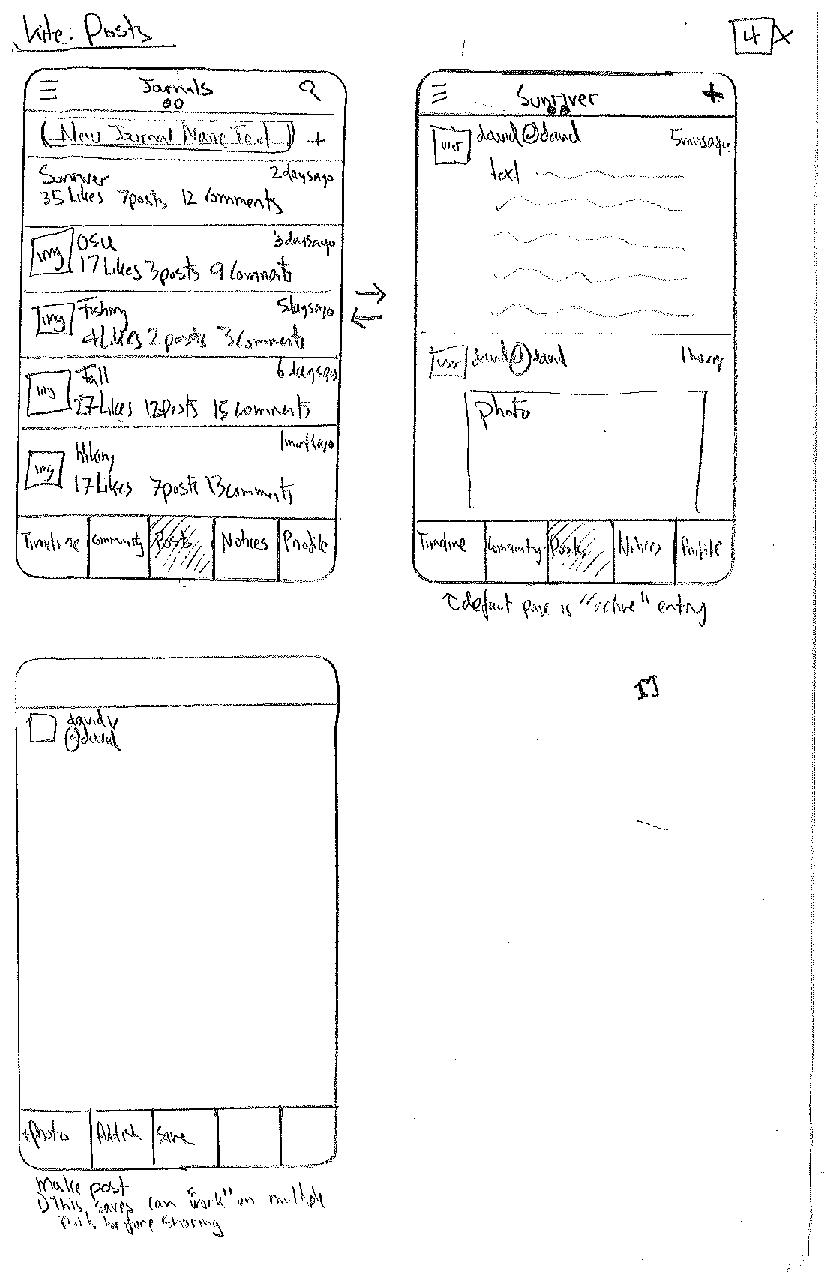 Kite: Posts
4
Journals
New Journal Name Text +
Sunriver 2 days ago
35 Likes 7 posts 12 Comments
img OSU 3 days ago
17 Likes 3 posts 9 Comments
img Fishing 5 days ago
4 Likes 2 posts 3 Comments
img Fall 6 days ago
27 Likes 12 posts 15 Comments
img Hiking 1 month ago
17 Likes 7 posts 13 comments
Timeline Community Posts Notices Profile
Sunriver +
user david @david 5 mins ago
text
user david @david 1 hour
photo
Timeline Community Posts Notices Profile
default page is "active" entry
david v
@david
+photo Publish Save
make post
This saves can "work" on multiple
posts before sharing